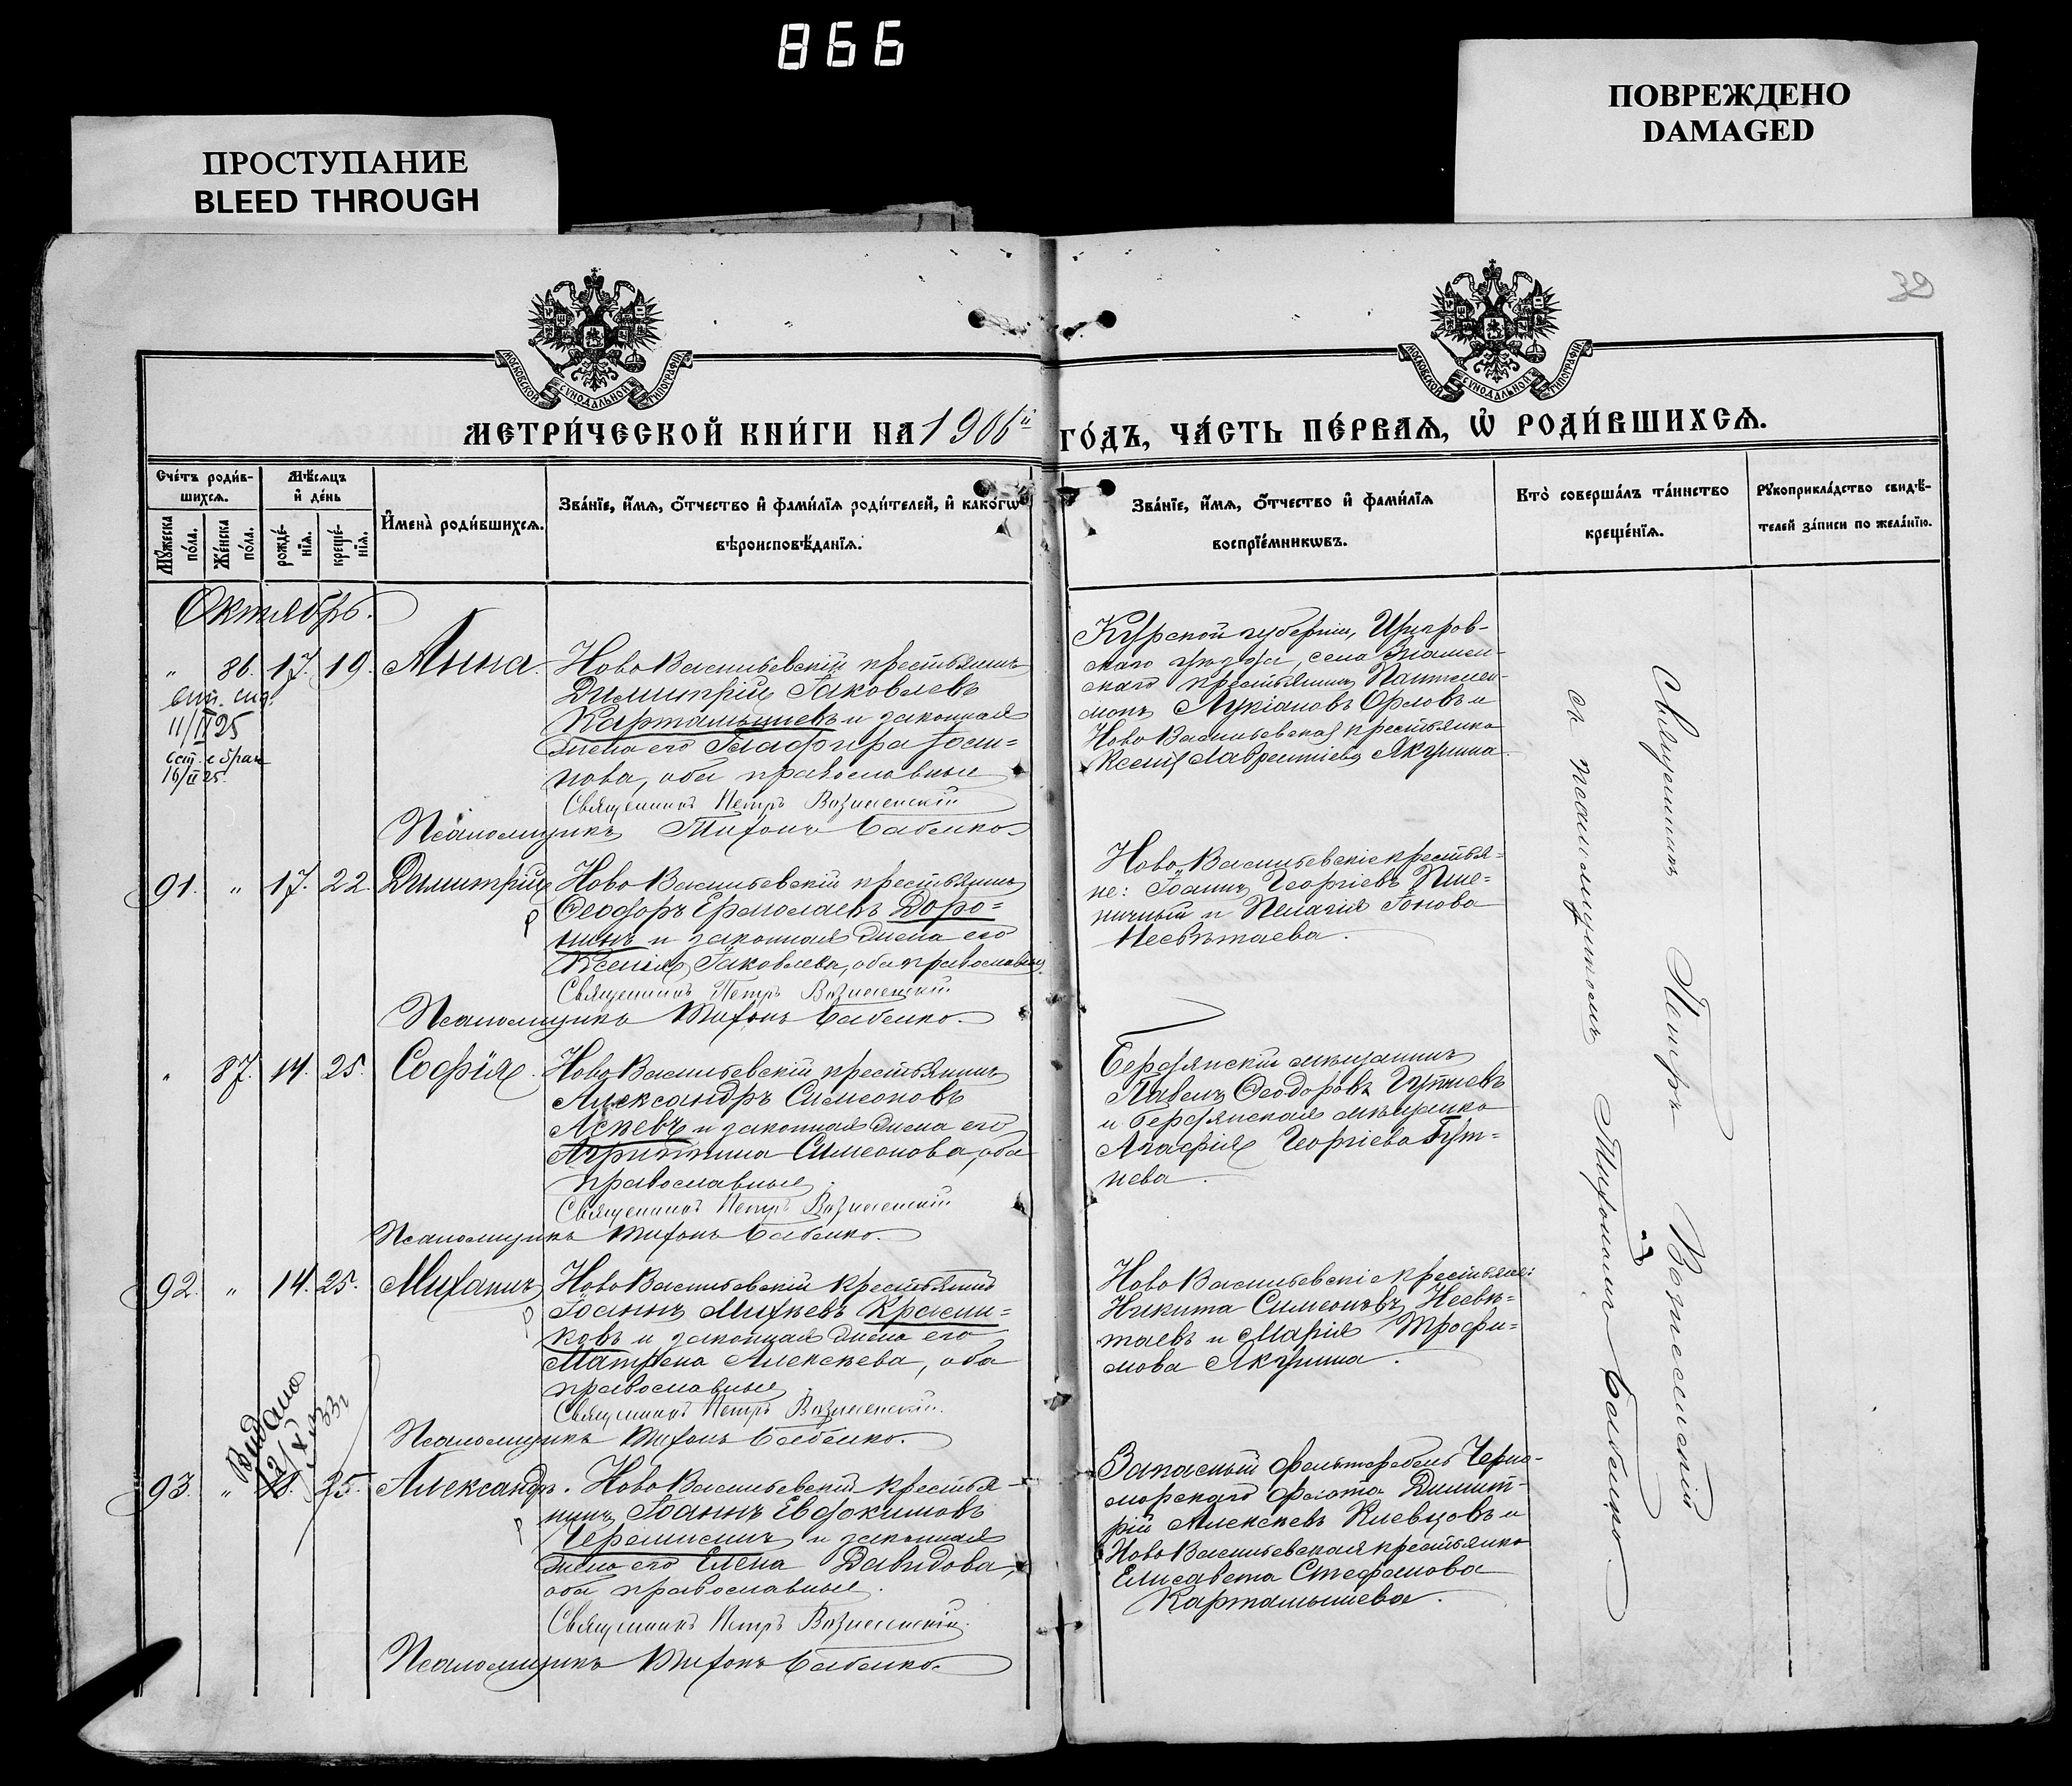 866
ПРОСТУПАНИЕ
BLEED THROUGH
ПОВРЕЖДЕНО
DAMAGED
39
МОСКОВСКОЙ СѴНОДАЛЬНОЙ ТИПОГРАФІИ
МОСКОВСКОЙ СѴНОДАЛЬНОЙ ТИПОГРАФІИ
МЕТРИ́ЧЕСКОЙ КНИ́ГИ НА 1906й ГО́ДЪ, ЧА́СТЬ ПЕ́РВАѦ, Ѽ РОДИ́ВШИХСѦ.
Сче́тъ роди́в-
шихсѧ.
Мꙋ́жеска по́ла.
Же́нска по́ла.
Мѣ́сѧцъ
и҆ де́нь
рожде́-
нїѧ.
креще́-
нїѧ.
И҆мена̀ роди́вшихсѧ.
Зва́нїе, и҆́мѧ, ѻ҆́тчество и҆ фами́лїѧ роди́телей, и҆ како́гѡ
вѣроисповѣ́данїѧ.
Зва́нїе, и҆́мѧ, ѻ҆́тчество и҆ фами́лїѧ
воспрїе́мникѡвъ.
Кто̀ соверша́лъ та́инство
креще́нїѧ.
Рꙋкоприкла́дство свидѣ́-
телей за́писи по жела́нїю.
Октябрь.
" 86. 17. 19. Анна. Ново Васильевскій крестьянинъ
Димитрій Іаковлевъ
Картамышевъ и законная
жена его Глафира Іоан=
нова, оба православные
Священникъ Петръ Вознесенскій
Псаломщикъ Тихонъ Бабенко.
11/II 25
16/II 25.
Курской губерніи, Щигров-
скаго уѣзда, села Знамен-
скаго крестьянинъ Пантелеи-
монъ Лукіановъ Орловъ и
Ново Васильевская крестьянка
Ксенія Лаврентіева Якунина
91. " 17. 22. Димитрій Ново Васильевскій крестьянинъ
Ѳеодоръ Ермолаевъ Доро=
нинъ и законная жена его
Ксенія Іаковлева, оба православны
Священникъ Петръ Вознесенскій
Псаломщикъ Тихонъ Бабенко.
Ново Васильевскіе крестья=
не: Іоаннъ Георгіевъ Пше=
ничный и Пелагія Іонова
Несвѣтаева.
" 87. 14. 25. Софія. Ново Васильевскій крестьянинъ
Александръ Симеоновъ
и законная жена его
Симеонова, оба
православные.
Священникъ Петръ Вознесенскій
Псаломщикъ Тихонъ Бабенко.
Бердянскій мѣщанинъ
Павелъ Ѳеодоровъ
и бердянская мѣщанка
Агафія Георгіева
нева.
92. " 14. 25. Михаилъ Ново Васильевскій крестьянинъ
Іоаннъ Михѣевъ Красни=
ковъ и законная жена его
Матрена Алексѣева, оба
православные.
Священникъ Петръ Вознесенскій.
Псаломщикъ Тихонъ Бабенко.
Ново Васильевскіе крестьяне:
Никита Симеоновъ Несвѣ=
таевъ и Марія Трофи=
мова Якунина.
Видано
12/X 33г
93. " 25. Александръ. Ново Васильевскій крестья-
нинъ Іоаннъ Евдокимовъ
Черемисинъ и законная
жена его Елена Давидова,
оба православные.
Священникъ Петръ Вознесенскій.
Псаломщикъ Тихонъ Бабенко.
Запасный фельдфебель Черно-
морскаго флота Димит-
рій Алексѣевъ Клевцовъ и
Ново Васильевская крестьянка
Елисавета Стефанова
Картамышева.
Священникъ Петръ Вознесенскій
съ псаломщикомъ Тихономъ Бабенко